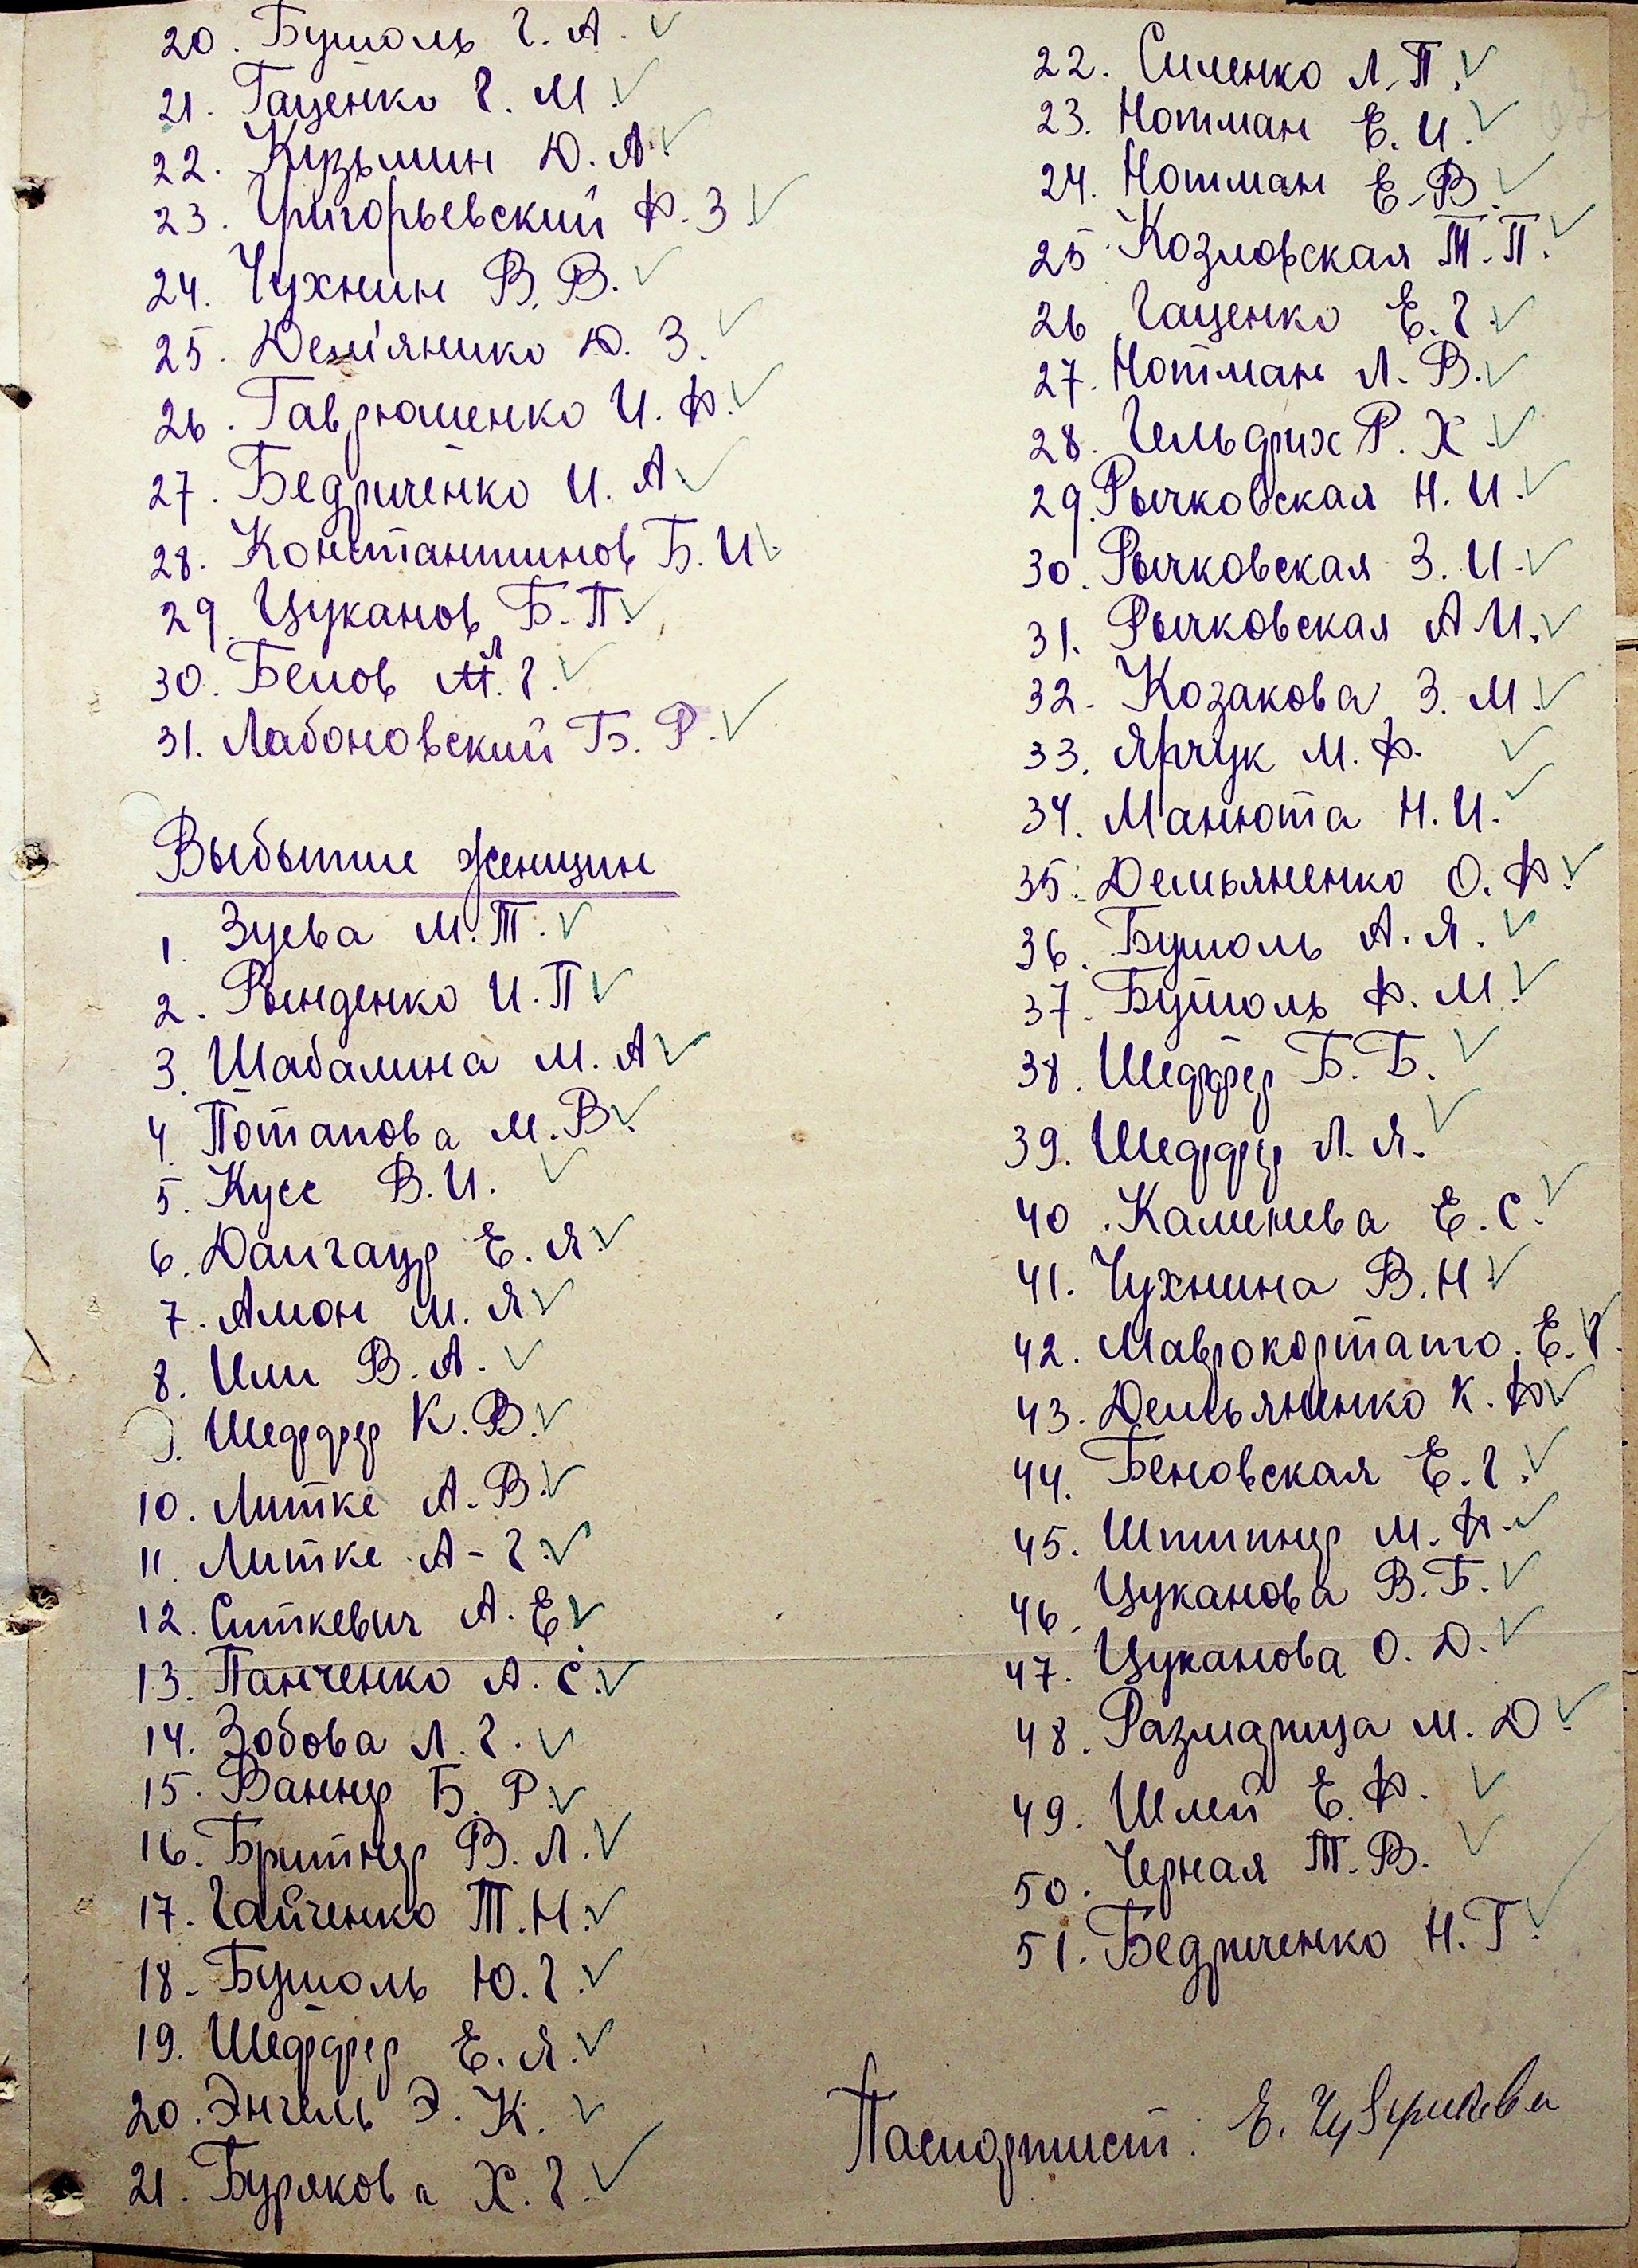 20. Бушоль Г. А.
21. Гаценко Г. М.
22. Кузьмин Ю. А.
23. Григорьевский Ф. З.
24. Чухнин В. В.
25. Дем'яника Ю. З.
26. Гаврюшенко И. Ф.
27. Бедриченко И. А.
28. Константинов Б. И.
29. Цуканов Б. П.
30. Белов Л. Г.
31. Лабоновский Б. Р.
Выбытие женщин
1. Зуева М. Т.
2. Рынденко И. П.
3. Шабалина М. А.
4. Потапова М. В.
5. Кусс В. И.
6. Дангауэр Е. Я.
7. Амон М. Я.
8. Или В. А.
9. Шеффер К. В.
10. Литке А. В.
11. Литке А - Г.
12. Ситкевич А. Е.
13. Панченко А. С.
14. Зобова Л. Г.
15. Ваннер Б. Р.
16. Бритнер В. Л.
17. Гайченко Т. Н.
18. Бушоль Ю. Г.
19. Шеффер Е. Я.
20. Энгель Э. К.
21. Бурякова Х. Г.
22. Сиченко Л. П.
23. Нотман Е. И.
24. Нотман Е. В.
25. Козловская Т. П.
26. Гаценко Е. Г.
27. Нотман Л. В.
28. Гельдрих Р. Х.
29. Рычковская Н. И.
30. Рычковская З. И.
31. Рычковская А И.
32. Козакова З. М.
33. Ярчук М. Ф.
34. Манюта Н. И.
35. Демьяненко О. Ф.
36. Бушоль А. Я.
37. Бушоль Ф. М.
38. Шеффер Б. Б.
39. Шеффер Л. Я.
40. Каленева Е. С.
41. Чухнина В. Н.
42. Маврокортато Е. Г.
43. Демьяненко К. Ф.
44. Беновская Е. Г.
45. Шпитнер М. Ф.
46. Цуканова В. Б.
47. Цуканова О. Д.
48. Размарица М. Д.
49. Шлей Е. Ф.
50. Черная Т. В.
51. Бедриченко Н. Г.
Паспортист: Е.